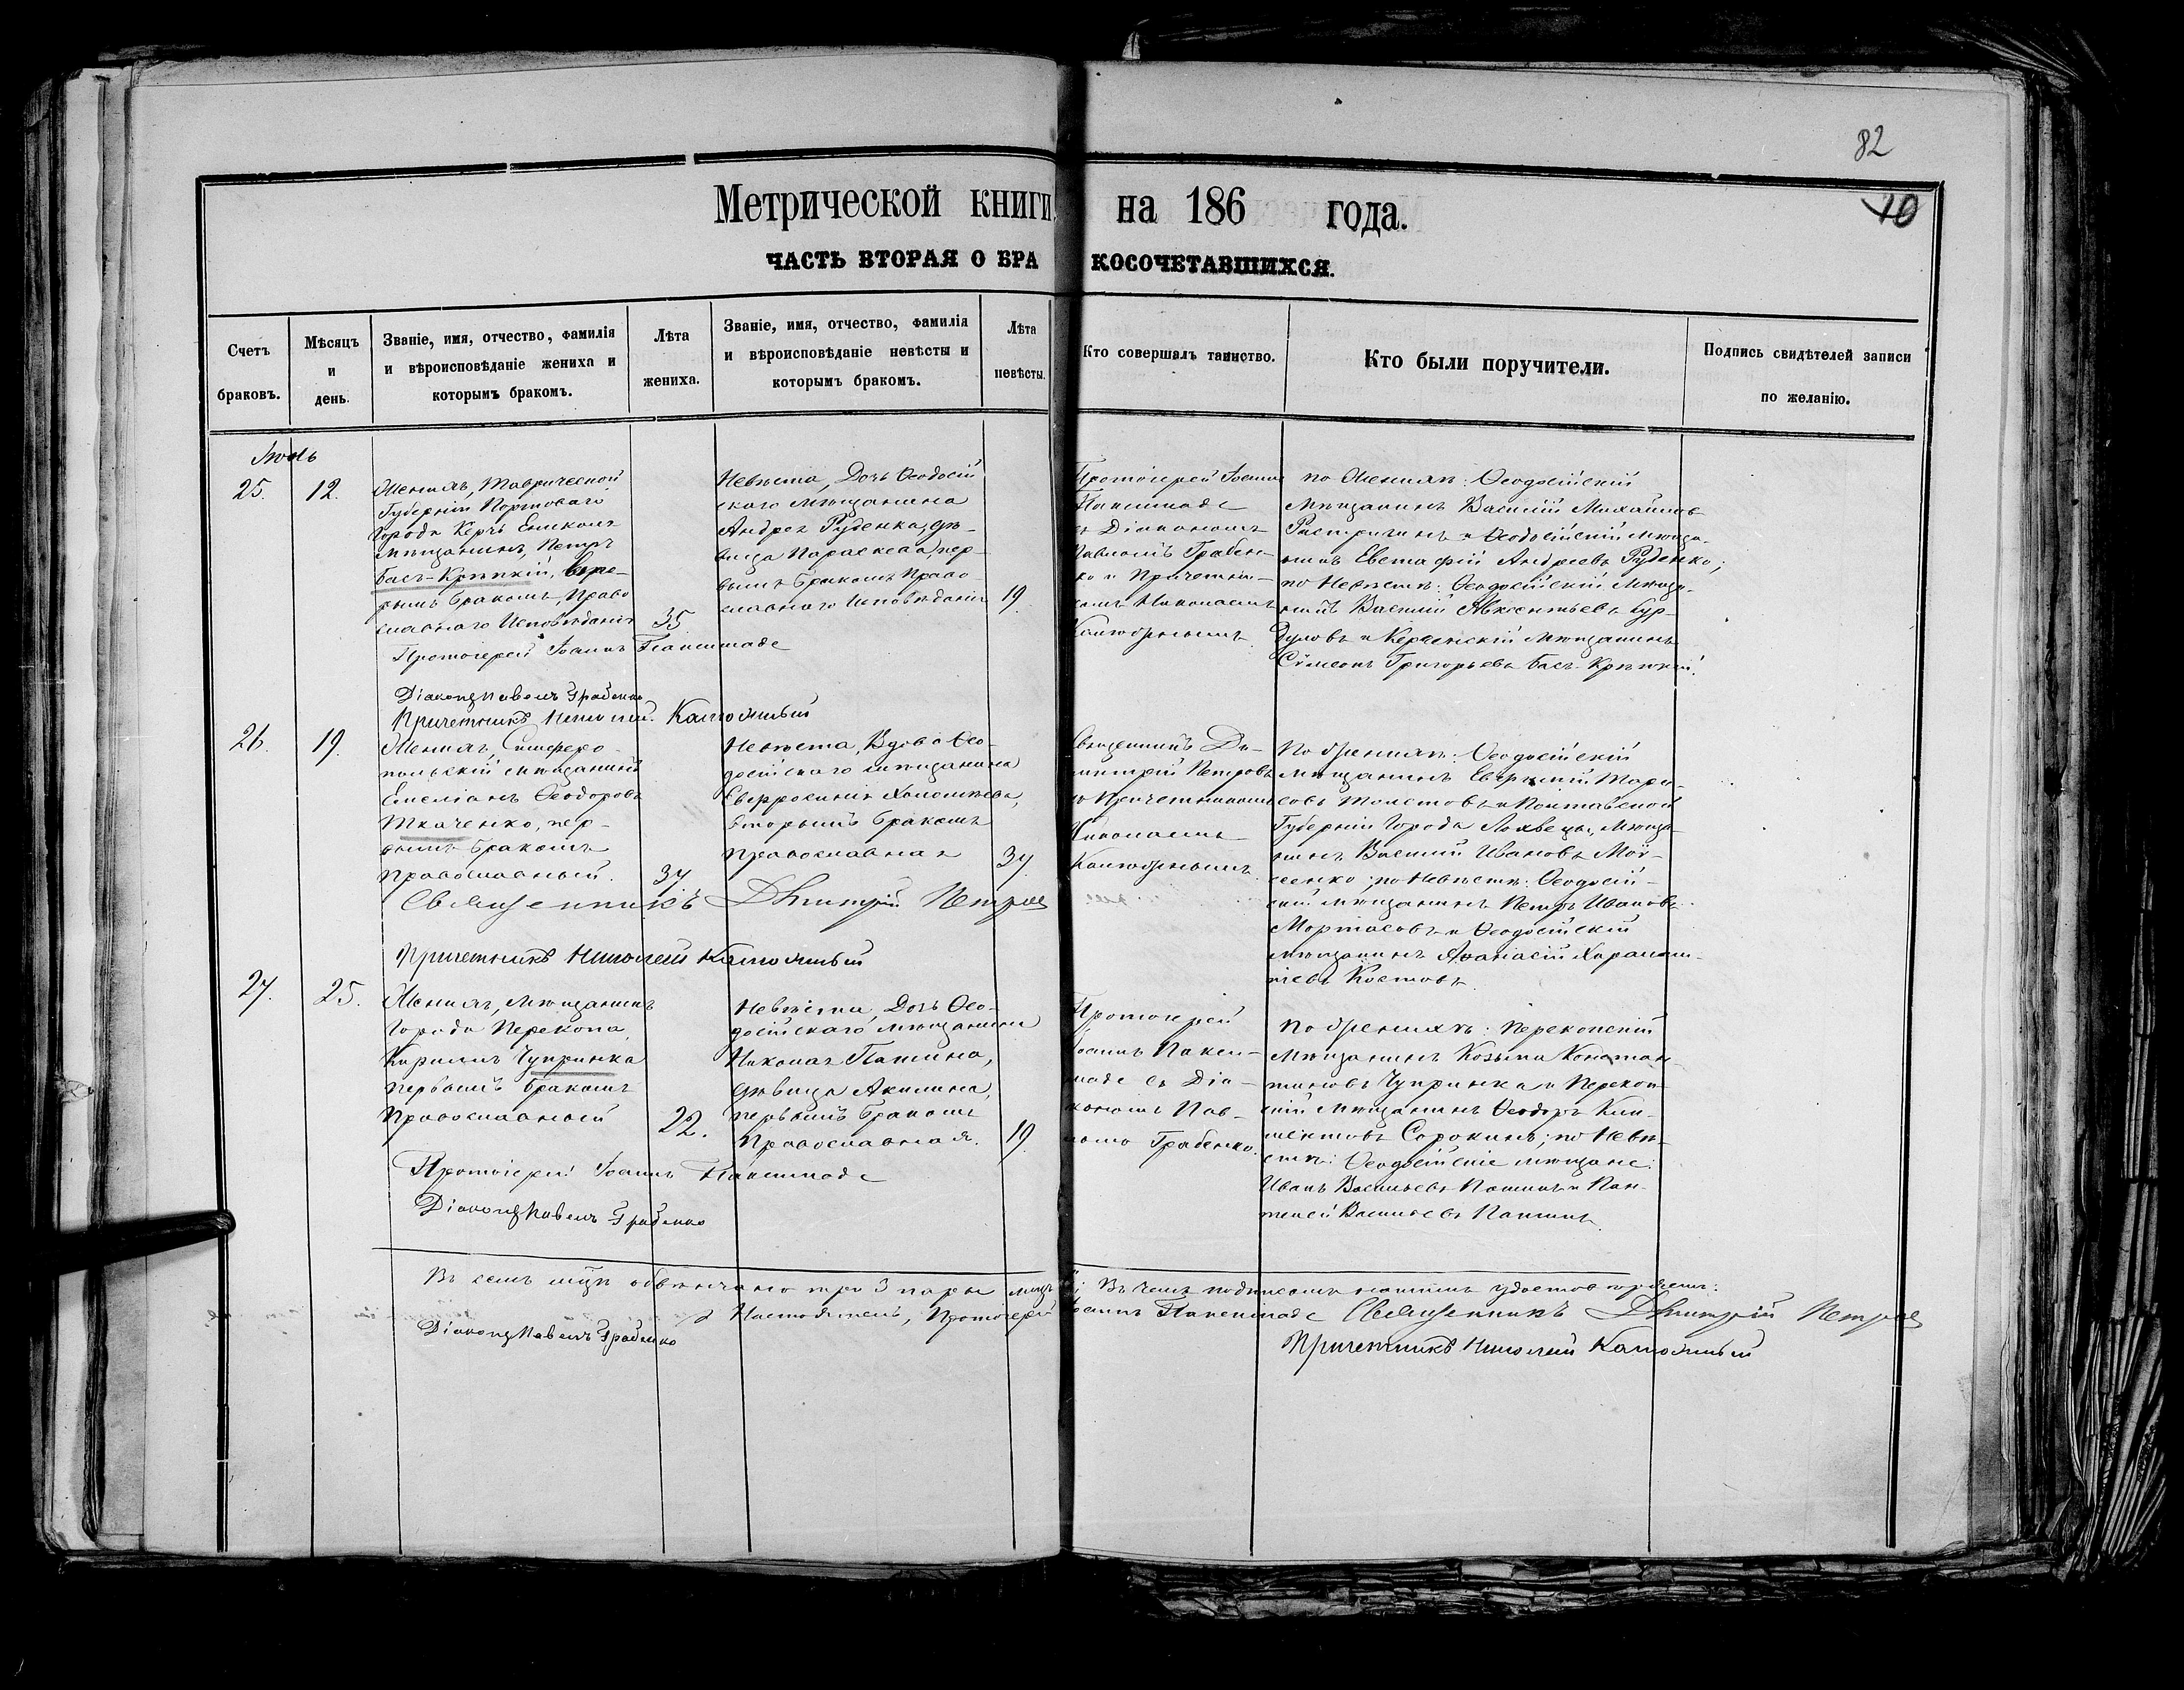 82
10
Метрической книги на 186 года.
ЧАСТЬ ВТОРАЯ О БРАКОСОЧЕТАВШИХСЯ.
Счетъ браковъ.
Мѣсяцъ и день.
Званіе, имя, отчество, фамилія и вѣроисповѣданіе жениха и которымъ бракомъ.
Лѣта жениха.
Званіе, имя, отчество, фамилія и вѣроисповѣданіе невѣсты и которымъ бракомъ.
Лѣта невѣсты.
Кто совершалъ таинство.
Кто были поручители.
Подпись свидѣтелей записи по желанію.
25.
12.
Женихъ, Таврической
Губерніи Портоваго
Города Керчь Еникале
мѣщанинъ, Петръ
Басъ-Крѣпкій,
рымъ бракомъ, Право
славнаго Исповѣданія
35
Невѣста, Дочь Ѳеодосій
скаго мѣщанина
Андрея Руденка, дѣ-
вица Параскева, пер-
вымъ бракомъ Право
славнаго Исповѣданія
19.
Протоіерей Іоаннъ
съ Діакономъ
Павломъ Грабен-
ко и Причетни-
комъ Николаемъ
по Женихѣ: Ѳеодосійскій
мѣщанинъ Василій Михайловъ
и Ѳеодосійскій мѣща-
нинъ Евстафій Андреевъ Руденко;
по Невѣстѣ: Ѳеодосійскій мѣща-
нинъ Василій Авксентьевъ Кур-
дуловъ и Керченскій мѣщанинъ
Сѵмеонъ Григорьевъ Басъ-Крѣпкій.
Протоіерей Іоаннъ
Діаконъ Павелъ Грабенко
Причетникъ Николай
26.
19.
Женихъ, Симферо-
польскій мѣщанинъ
Емеліанъ Ѳеодоровъ
Ткаченко, пер-
вымъ бракомъ
православный.
34
Невѣста, Вдова Ѳео-
досійскаго мѣщанина
Евфросинія
вторымъ бракомъ
православная
34.
Священникъ Ди-
митрій Петровъ
съ Причетникомъ
Николаемъ
По Женихѣ: Ѳеодосійскій
мѣщанинъ
Толстовъ и Полтавской
Губерніи Города Лохвицы, мѣща-
нинъ Василій Ивановъ Мой-
сенко; по Невѣстѣ: Ѳеодосій-
скій мѣщанинъ Петръ Ивановъ
и Ѳеодосійскій
мѣщанинъ Аѳанасій Харалам-
піевъ Костовъ.
Священникъ Дмитрій Петровъ
Причетникъ Николай
27.
25.
Женихъ, мѣщанинъ
Города Перекопа,
Кириллъ Чупринка
первымъ бракомъ
Православный
22.
Невѣста, Дочь Ѳео-
досійскаго мѣщанина
Николая Папина,
дѣвица Акилина,
первымъ бракомъ
Православная.
19.
Протоіерей
Іоаннъ
съ Діа-
кономъ Пав-
ломъ Грабенко.
По Женихѣ: Перекопскій
мѣщанинъ Козьма Констан-
тиновъ Чупринка и Перекоп-
скій мѣщанинъ Ѳеодоръ Кли-
ментовъ Сорокинъ; по Невѣ-
стѣ: Ѳеодосійскіе мѣщане:
Иванъ Васильевъ Папинъ и Пан-
телей Васильевъ Папинъ.
Протоіерей Іоаннъ
Діаконъ Павелъ Грабенко
Въ семъ м-цѣ обвѣнчано три 3 пары лицъ; Въ чемъ подписомъ нашимъ удостовѣряемъ:
Настоятель, Протоіерей Іоаннъ Священникъ Дмитрій Петровъ
Діаконъ Павелъ Грабенко
Причетникъ Николай